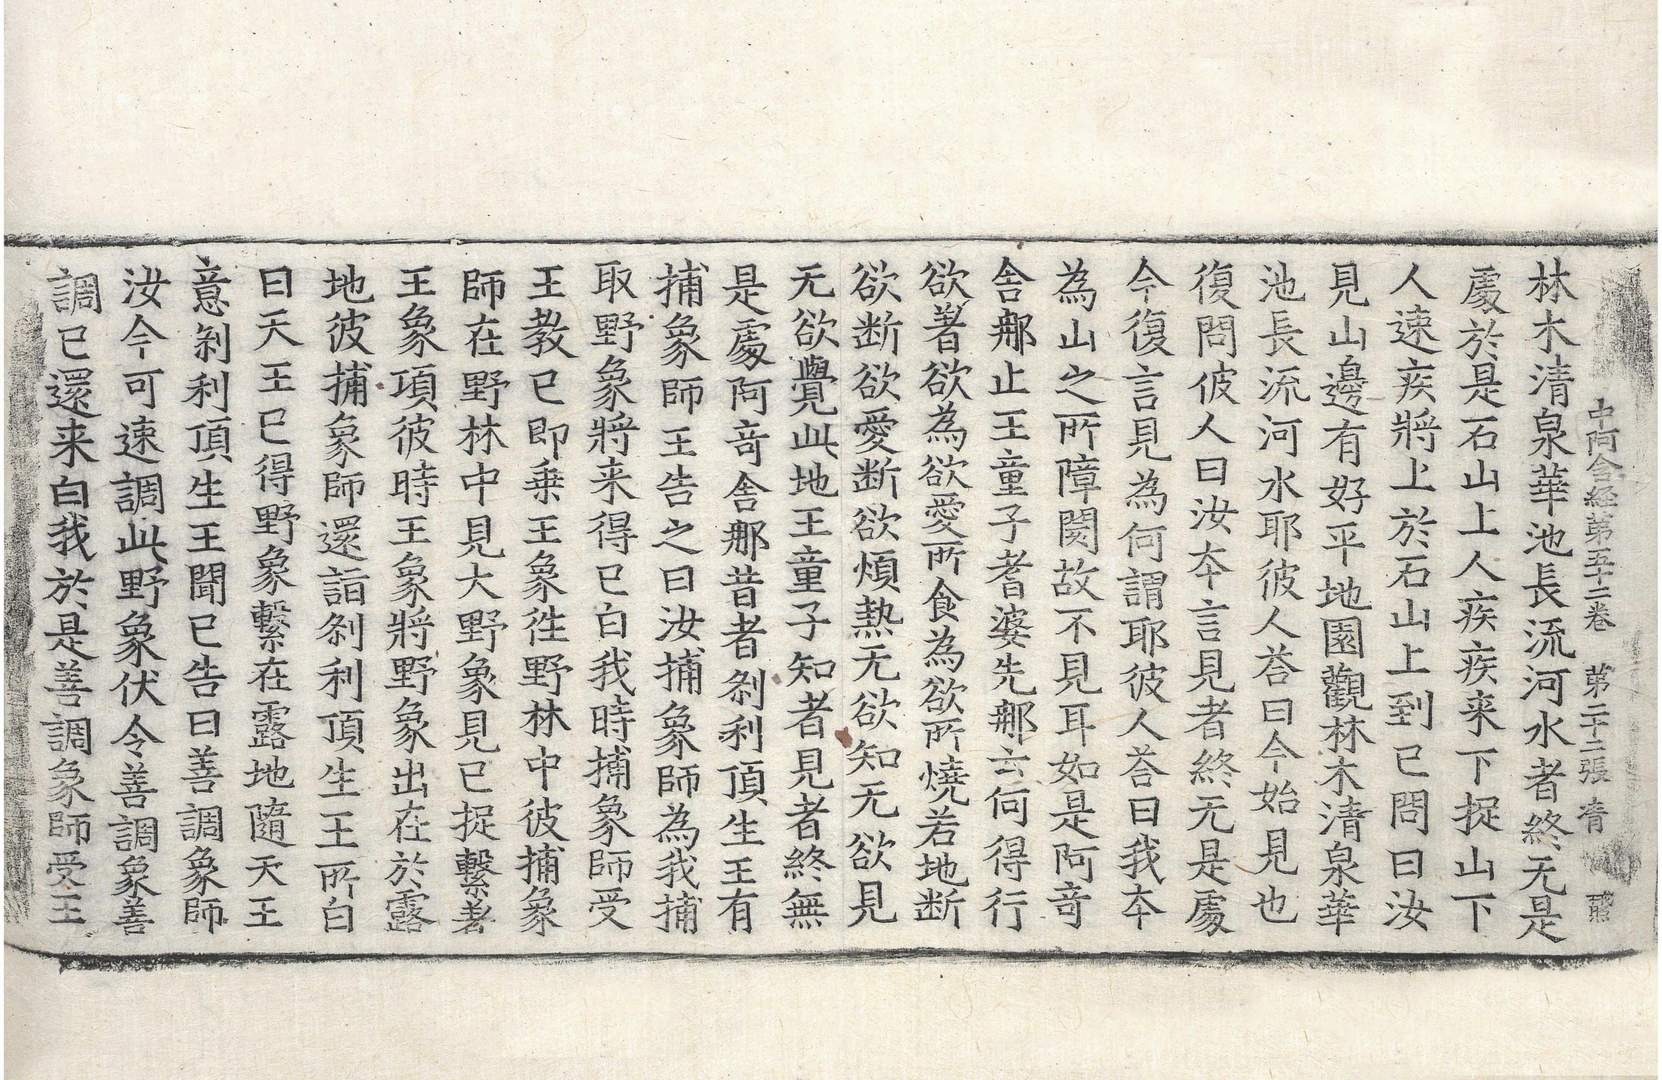 中阿含経第五十二卷 第二十二張 青
林木清泉華池長流河水者終无是
處於是石山上人疾疾来下捉山下
人速疾將上於石山上到已問曰汝
見山邊有好平地園觀林木清泉華
池長流河水耶彼人荅曰今始見也
復問彼人曰汝夲言見者終无是處
今復言見為何謂耶彼人荅曰我夲
為山之所障閡故不見耳如是阿竒
舍䣀止王童子耆婆先䣀云何得行
欲著欲為欲愛所食為欲所燒若地断
欲断欲愛断欲煩熱无欲知无欲見
无欲覺此地王童子知者見者終無
是處阿竒舍䣀昔者剎利頂生王有
捕象師王告之曰汝捕象師為我捕
取野象將来得已白我時捕象師受
王教已即乗王象徃野林中彼捕象
師在野林中見大野象見已捉繫著
王象項彼時王象將野象出在於露
地彼捕象師還詣剎利頂生王所白
曰天王已得野象繫在露地隨天王
意剎利頂生王聞已告曰善調象師
汝今可速調此野象伏令善調象善
調已還来白我於是善調象師受王